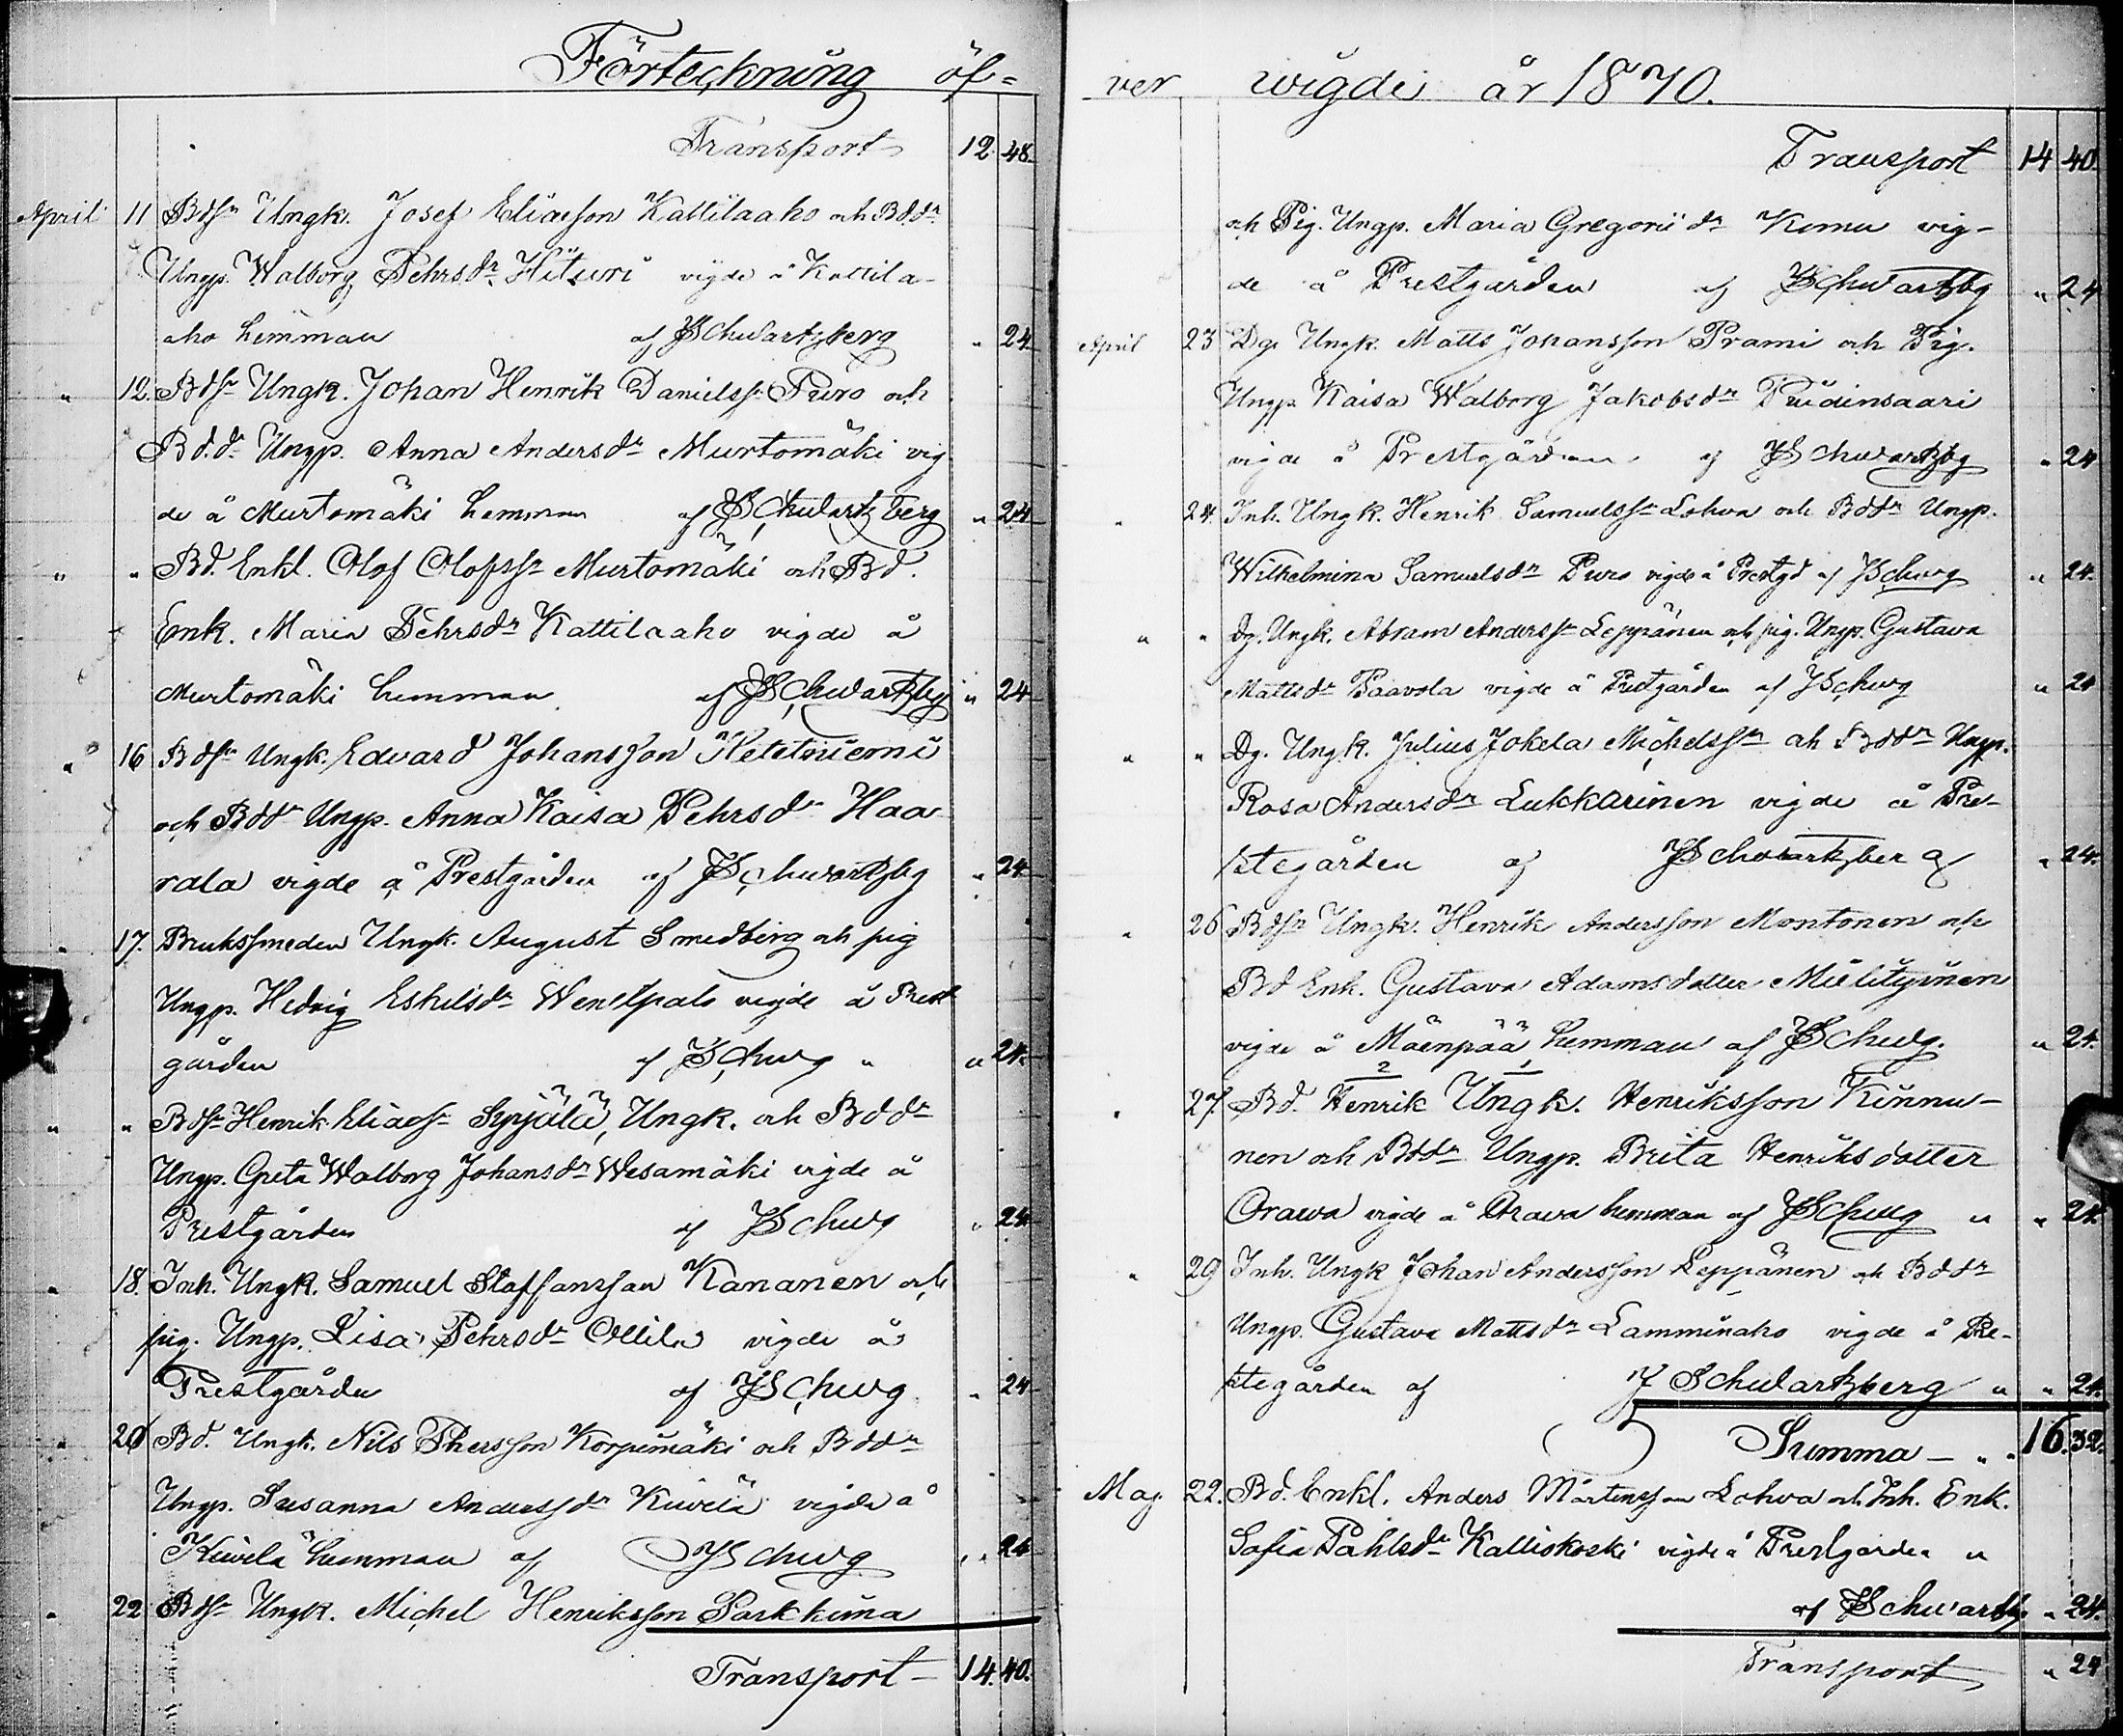 Förteckning öf=
Transport 12 48
April 11 Bdsn Ungk. Josef Eliaesson Kattilaaho och Bddr
Ungp. Walborg Pehrsdr Hituri vigde å Kattila-
aho hemman af JSchwartzberg " 24
" 12. Bdsn Ungk. Johan Henrik Danielss. Puro och
Bd.dr Ungp. Anna Andersdr Murtomäki vig
de å Murtomäki hemman af JSchwartzberg " 24
" " Bd. Enkl. Olof Olofssn Murtomäki och Bd.
Enk. Maria Pehrsdr Kattilaaho vigde å
Murtomäki hemman af JSchwartzbg " 24
" 16 Bdsn Ungk. Edvard Johansson Hetetniemi
och Bddr Ungp. Anna Kaisa Pehrsdr Haa
rala vigde å Prestgården af JSchwartzbg " 24
" 17. Brukssmeden Ungk. August Smedberg och pig
Ungp. Hedvig Eskilsdr Wenepalo vigde å Prest
gården af JSchwg " " 24.
" " Bdsn Henrik Eliaesn Sypjälä, Ungk. och Bddr
Ungp. Greta Walborg Johansdr Wesamäki vigde å
Prestgården af JSchwg " 24
" 18. Inh. Ungk. Samuel Staffansson Kananen och
pig. Ungp. Lisa Pehrsdr Ollila vigde å
Prestgården af JSchwg " 24
" 20 Bd. Ungk. Nils Phersson Korpimäki och Bddr
Ungp. Susanna Anderssdr Kiwelä vigde å
Kiwelä hemman af JSchwg " " 24
" 22 Bdsn Ungk. Michel Henriksson Parkkima
Transport 14. 40.
ver wigde år 1870.
Transport 14 40.
och Pig. Ungp. Maria Gregoriidr Komu vig-
de å Prestgården af JSchwartzbg " 24
April 23 Dg. Ungk. Matts Johansson Prami och Pig.
Ungp. Kaisa Walborg Jakobsdr Pridinsaari
vigde å Prestgården af JSchwartzbg " 24
" 24. Inh. Ungk. Henrik Samuelssn Lohva och Bddr Ungp.
Wilhelmina Samuelsdr Puro vigde å Prestgd af JSchwg " 24.
" " Dg. Ungk. Abram Anderssn Leppänen och pig. Ungp. Gustava
Mattsdr Paavola vigde å Prestgården af JSchwg " 24
" " Dg. Ungk. Julius Jokela Michelssn och Bddr Ungp.
Rosa Andersdr Lukkarinen vigde å Pre-
stegården af JSchwartzberg " 24.
" 26 Bdsn Ungk. Henrik Andersson Montonen och
Bd Enk. Gustava Adamsdotter Mielityinen
vigde å Mäenpää hemman af JSchwg. " 24.
2 1
" 27. Bd. Henrik Ungk. Henriksson Kinnu-
nen och Bddr Ungp. Brita Henriksdotter
Orawa vigde å Orawa hemman af JSchwg " " 24
" 29 Inh. Ungk Johan Andersson Leppänen och Bddr
Ungp. Gustava Mattsdr Lamminaho vigde å Pre-
stegården af J Schwartzberg " " 24.
Summa - " " 16. 32.
Maj 22. Bd. Enkl. Anders Mårtensson Lohva och Inh. Enk.
Sofia Pahlsdr Kalliokoski vigde å Prestgården "
af JSchwartzbg. " 24.
Transport " 24